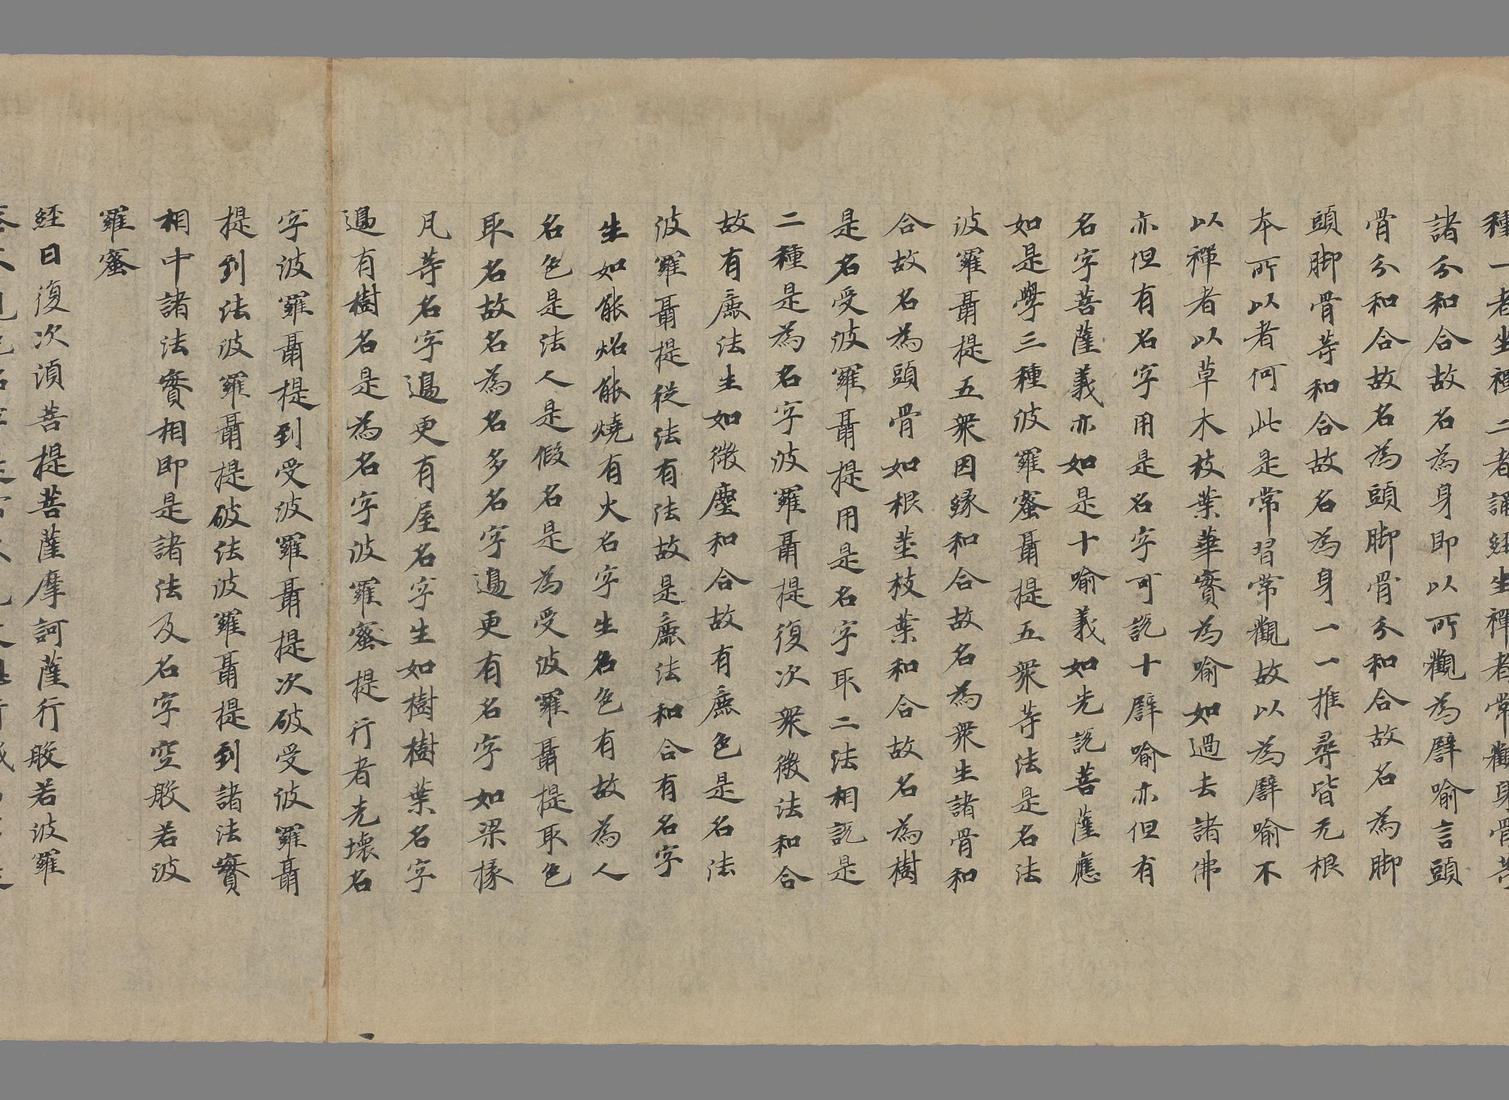 諸分和合故名為身即以所觀為譬喻言頭
骨分和合故名為頭脚骨分和合故名為脚
頭脚骨等和合故名為身一一推尋皆无根
本所以者何此是常習常觀故以為譬喻不
以禪者以草木枝葉華實為喻如過去諸佛
亦但有名字用是名字可說十譬喻亦但有
名字菩薩義亦如是十喻義如先說菩薩應
如是學三種波羅蜜聶提五衆等法是名法
波羅聶提五衆因緣和合故名為衆生諸骨和
合故名為頭骨如根莖枝葉和合故名為樹
是名受波羅聶提用是名字取二法相說是
二種是為名字波羅聶提復次衆微法和合
故有麁法生如微塵和合故有麁色是名法
波羅聶提從法有法故是麁法和合有名字
生如能炤能燒有火名字生名色有故為人
名色是法人是假名是為受波羅聶提取色
取名故名為名多名字邊更有名字如梁椽
凡等名字邊更有屋名字生如樹樹葉名字
邊有樹名是為名字波羅蜜提行者先壞名
字波羅聶提到受波羅聶提次破受波羅聶
提到法波羅聶提破法波羅聶提到諸法實
相中諸法實相即是諸法及名字空般若波
羅蜜
經曰復次湏菩提菩薩摩訶薩行般若波羅